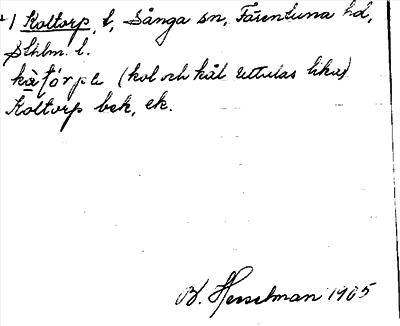 +) Koltorp, t, Sånga sn, Färentuna hd,
Sthlm. l.
kàtórpe (kol och kål uttalas lika)
Koltorp bek, ek.
B. Hesselman 1905